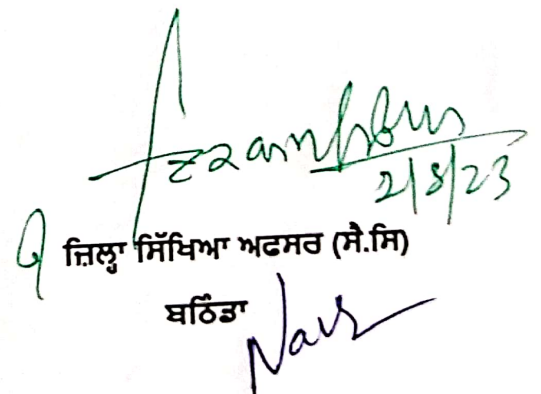 2/8/23
ਜ਼ਿਲ੍ਹਾ ਸਿੱਖਿਆ ਅਫਸਰ (ਸੈ.ਸਿ)
ਬਠਿੰਡਾ